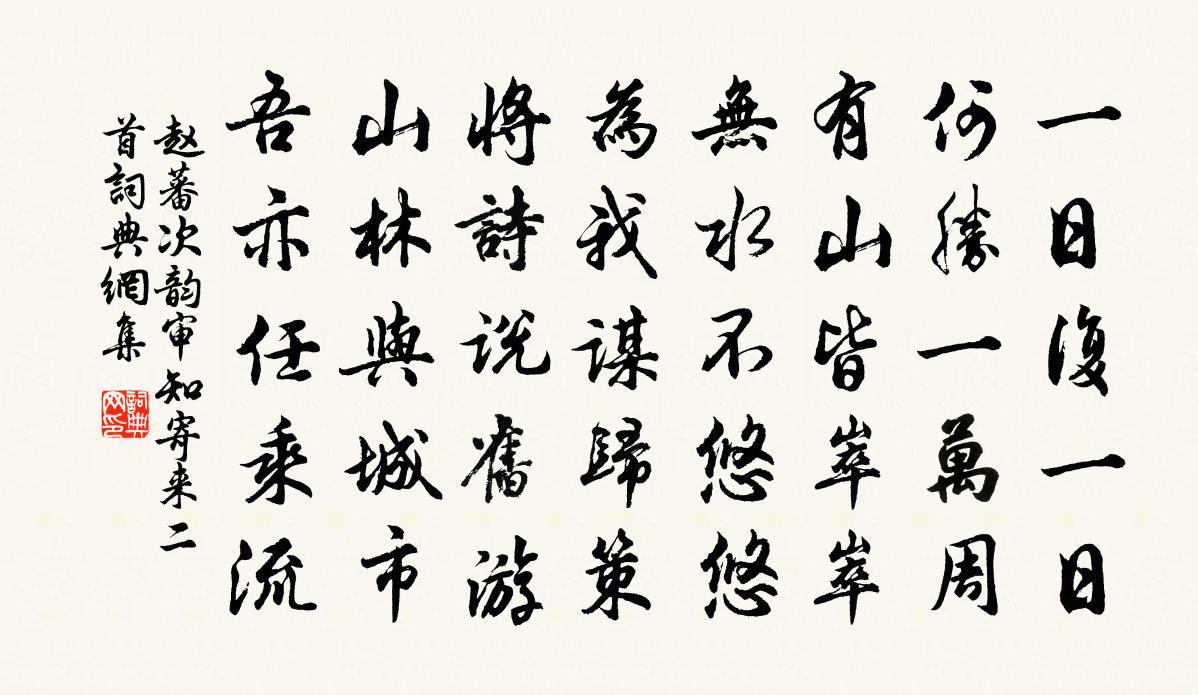 一日復一日
何勝一萬周
有山皆崒崒
無水不悠悠
為我謀歸策
將詩説舊游
山林與城市
吾亦任乘流
赵蕃次韵审知寄来二
首詞典網集
詞典
网印